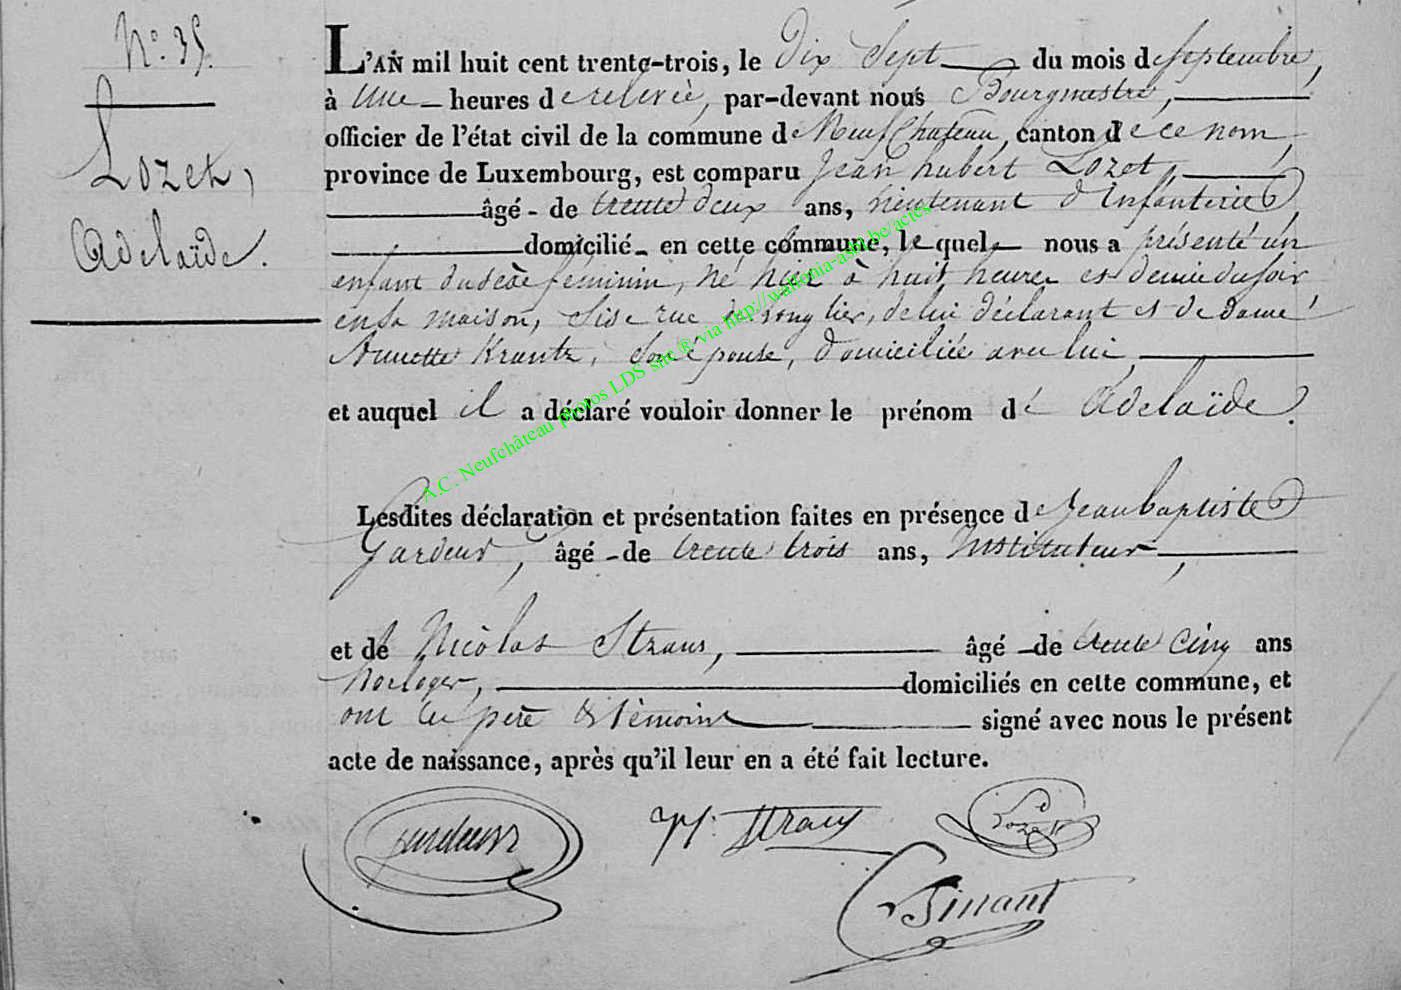 N.° 35.
Lozet,
Adelaïde.
L'AN mil huit cent trente-trois, le Dix Sept du mois de septembre,
à une heures de relevée, par-devant nous Bourgmestre,
officier de l'état civil de la commune de Neufchateau, canton de ce nom,
province de Luxembourg, est comparu Jean hubert Lozet,
âgé - de trente deux ans, lieutenant d'Infanterie,
domicilié - en cette commune, lequel nous a présenté un
enfant du sexe féminin, né hier à huit heures et demie du soir
en sa maison, sise rue de lui déclarant et de Dame
Annette Krantz, son épouse, domiciliée avec lui,
et auquel il a déclaré vouloir donner le prénom de Adelaïde.
Lesdites déclaration et présentation faites en présence de Jean baptiste
Gardeur, âgé - de trente trois ans, Instituteur,
et de Nicolas Straus, âgé - de trente cinq ans
horloger, domiciliés en cette commune, et
ont les père & témoins signé avec nous le présent
acte de naissance, après qu'il leur en a été fait lecture.
A.C. Neufchâteau photos LDS site ® via http://wallonia-asbl.be/actes
Gardeur
N. Straus
Lozet